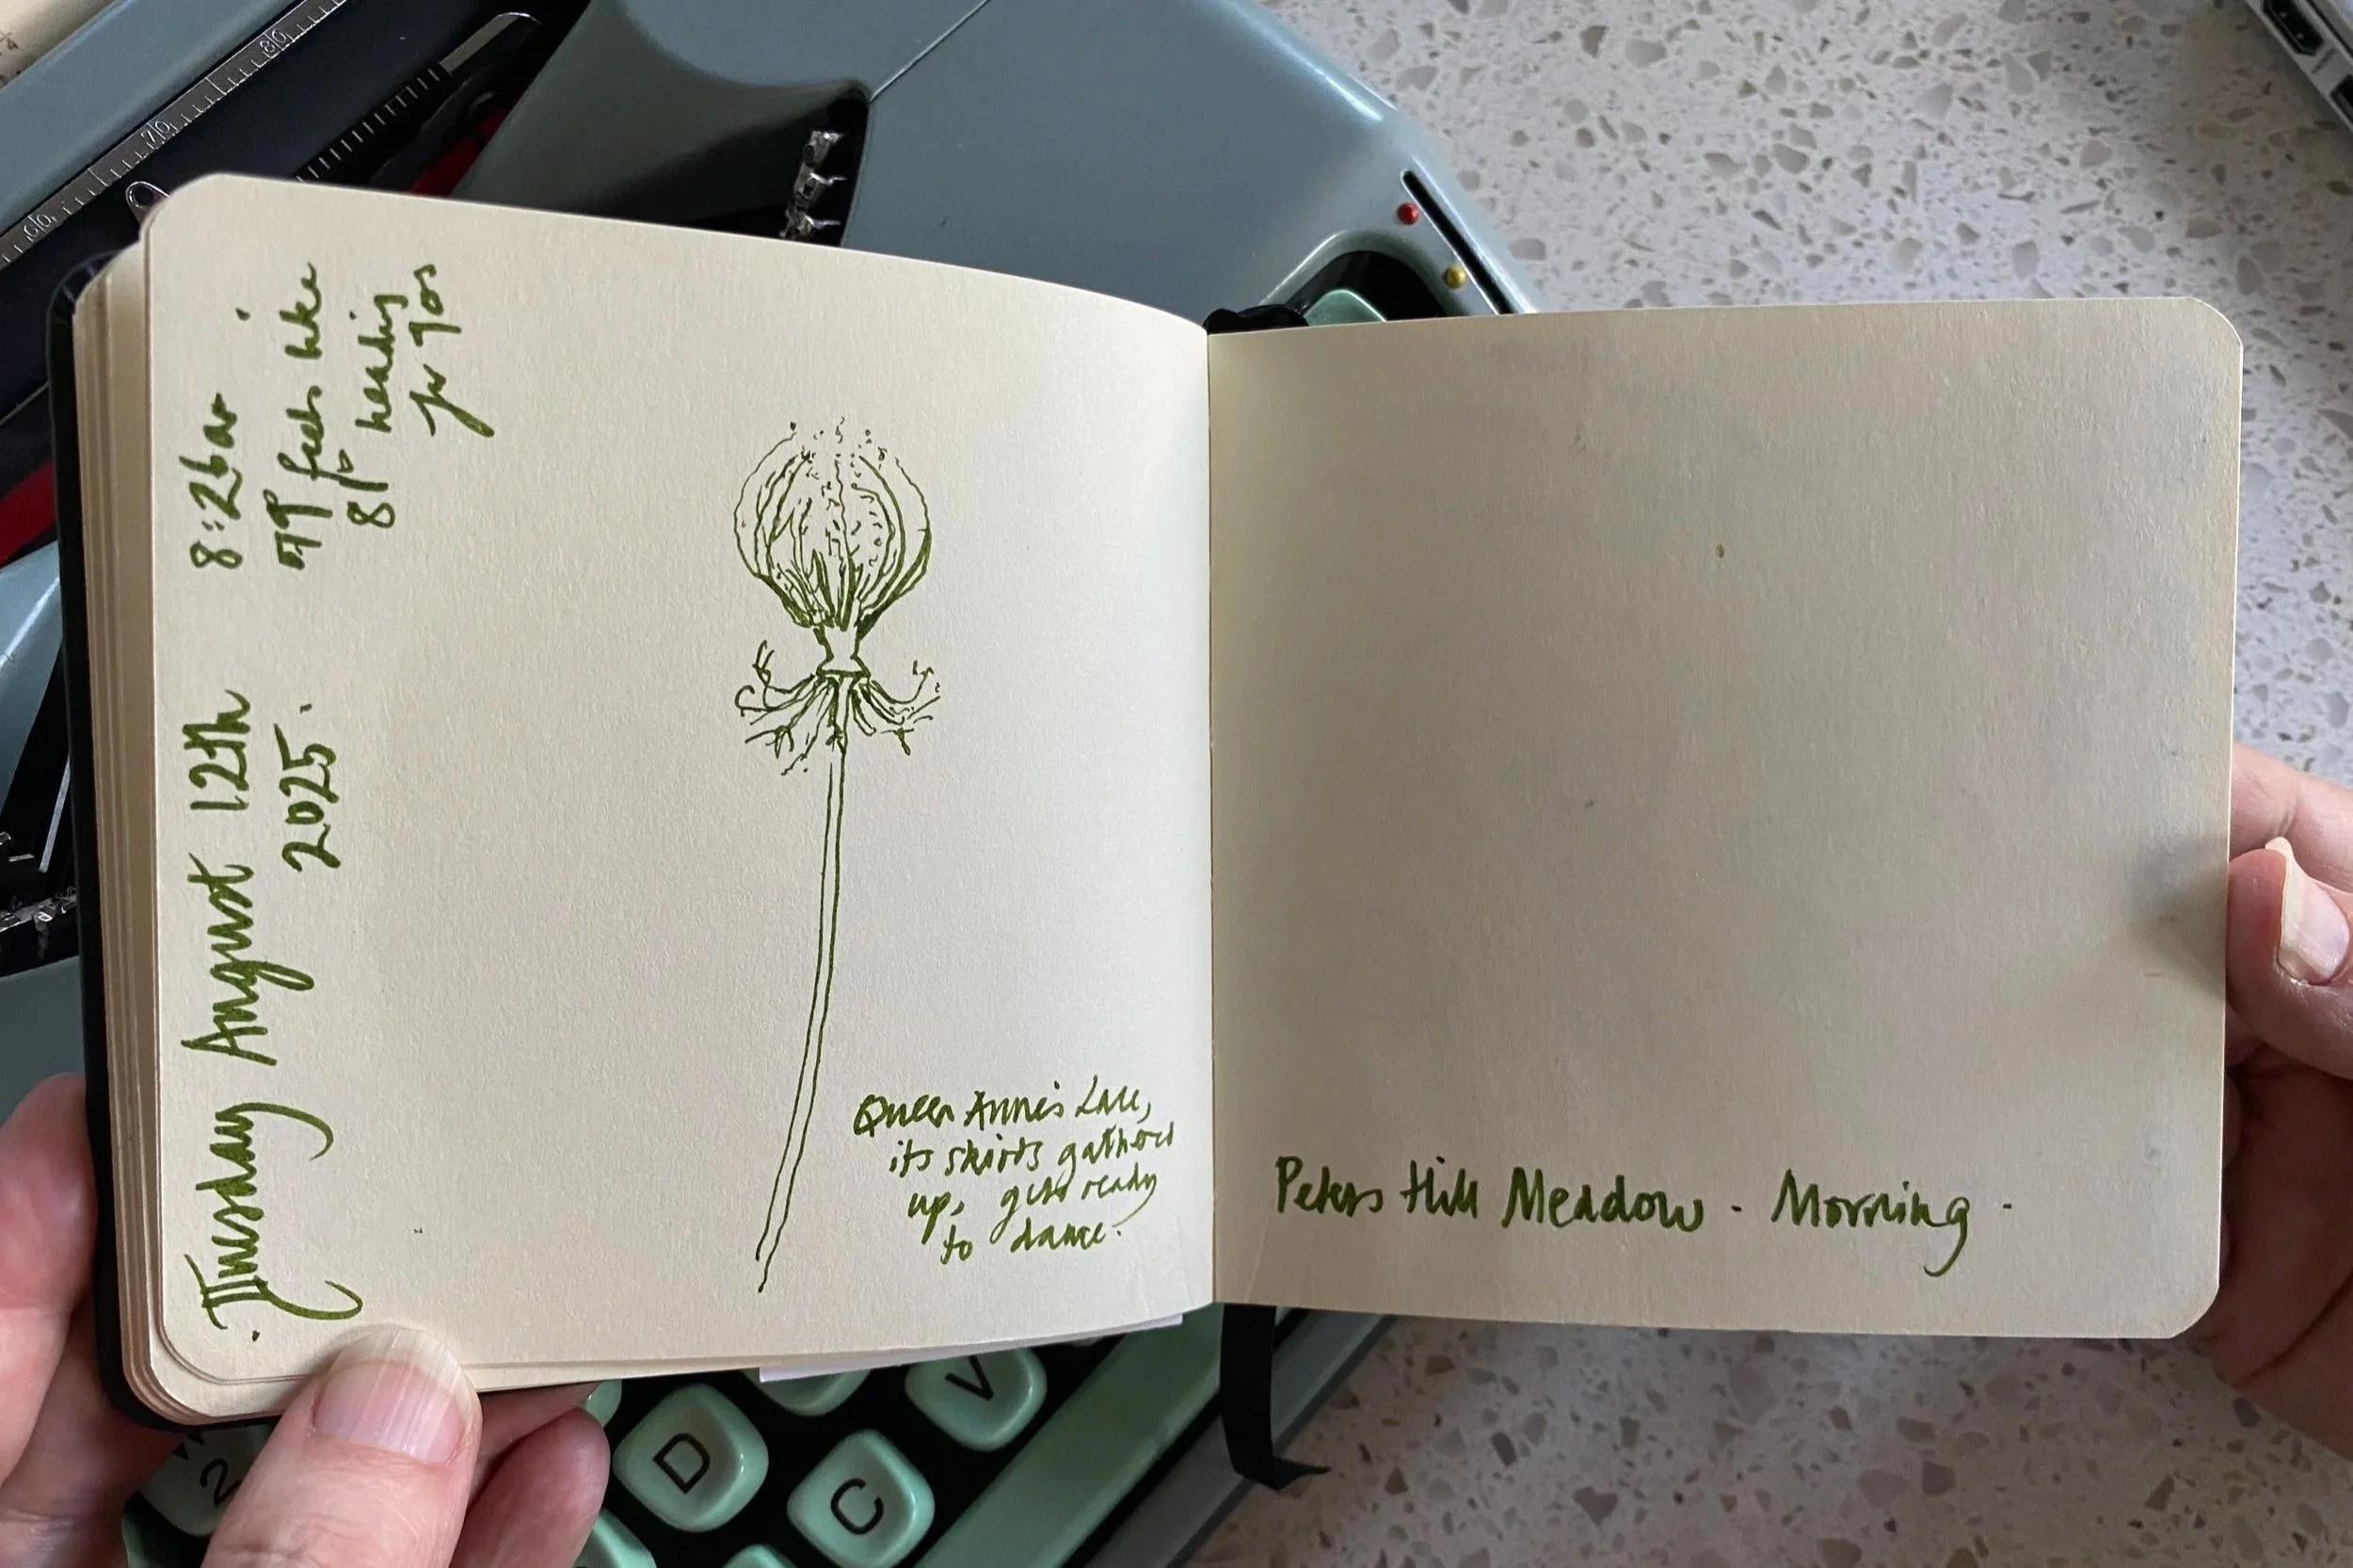 Tuesday August 12th
2025.
8:26am.
79 feels like
81 heading
for 90s
Queen Anne's Lace,
its skirts gathered
up, gets ready
to dance.
Peters Hill Meadow - Morning -
D
C
V
2